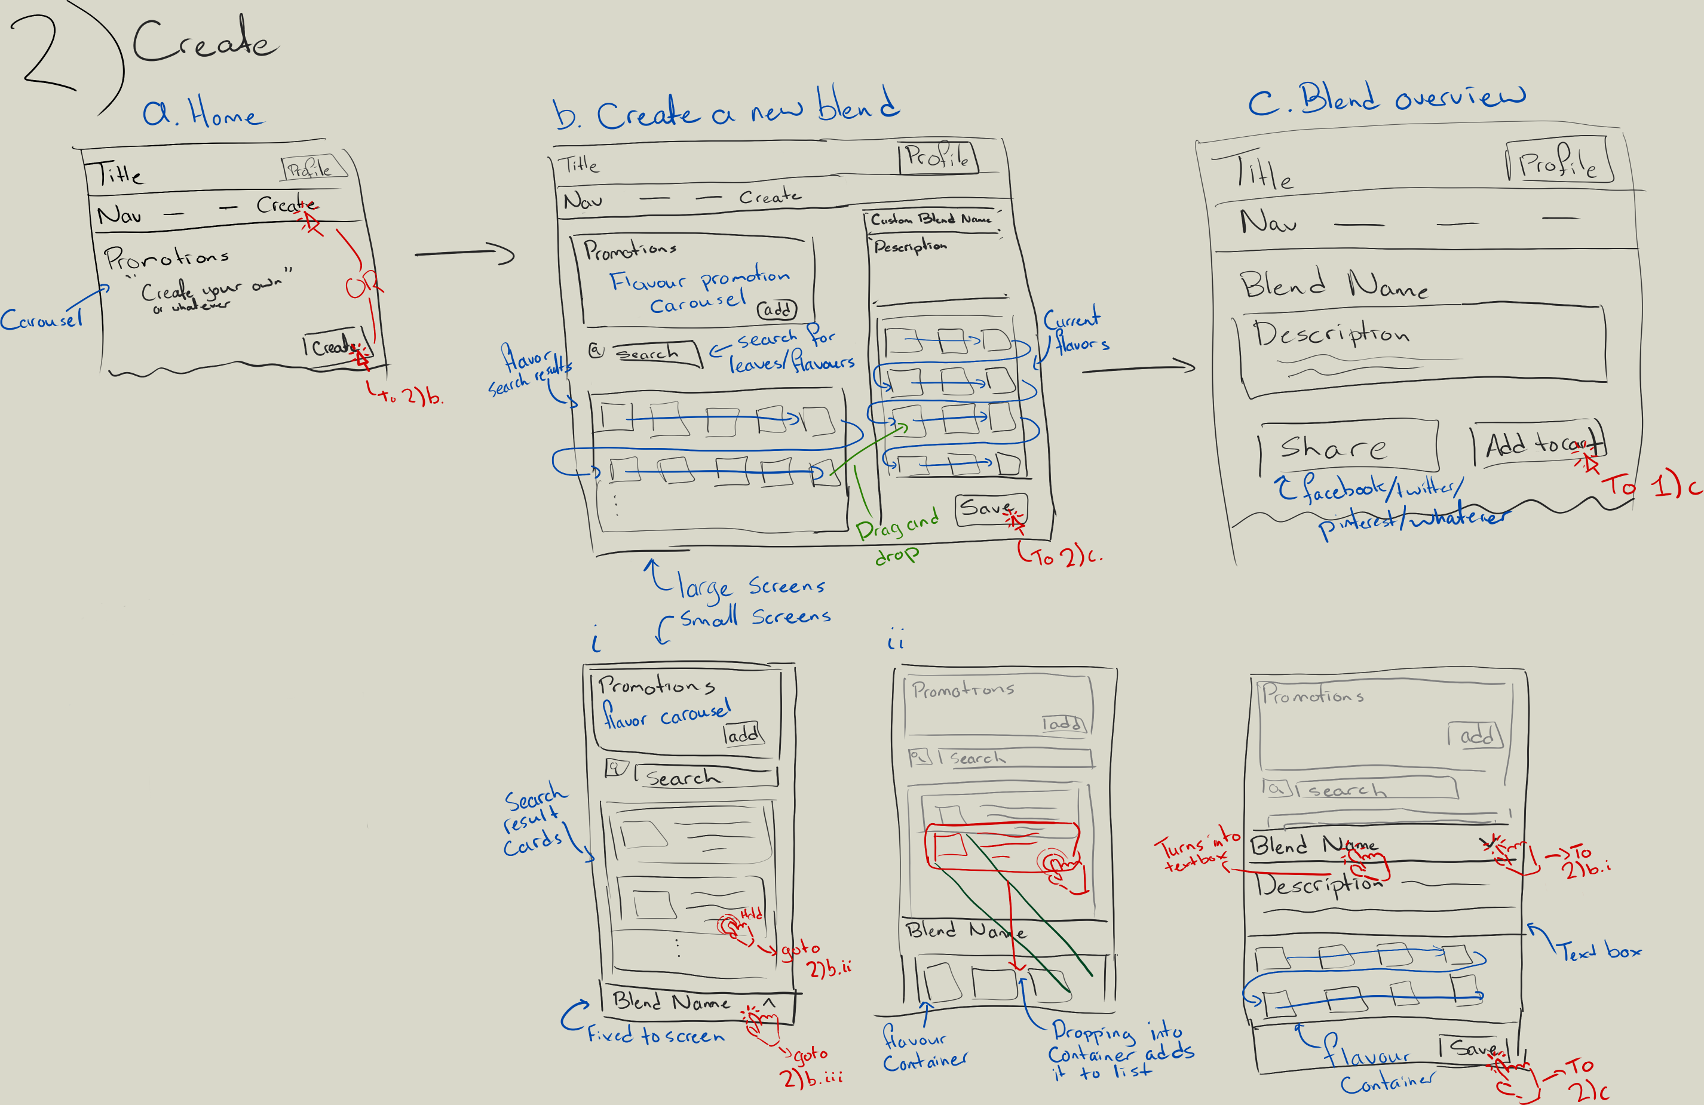 2) Create
a. Home
Title
Profile
Nav — — Create
Promotions
"Create your own"
or whatever
Carousel
OR
Create
To 2)b.
b. Create a new blend
Title
Profile
Nav — — Create
Promotions
Flavour promotion
Carousel
add
search
search for
leaves/flavours
flavor
search results
Custom Blend Name
Description
Current
flavors
Drag and
drop
Save
To 2)c.
large screens
small screens
c. Blend overview
Title
Profile
Nav — — —
Blend Name
Description
Share
Add to cart
facebook/twitter/
pinterest/whatever
To 1)c
i
Promotions
flavor carousel
add
search
Search
result
cards
Hold
goto
2)b.ii
Blend Name ^
Fixed to screen
goto
2)b.iii
ii
Promotions
add
search
Blend Name
flavour
container
Dropping into
container adds
it to list
Promotions
add
search
Turns into
textbox
Blend Name
To
2)b.i
Description
Text box
flavour
container
Save
To
2)c